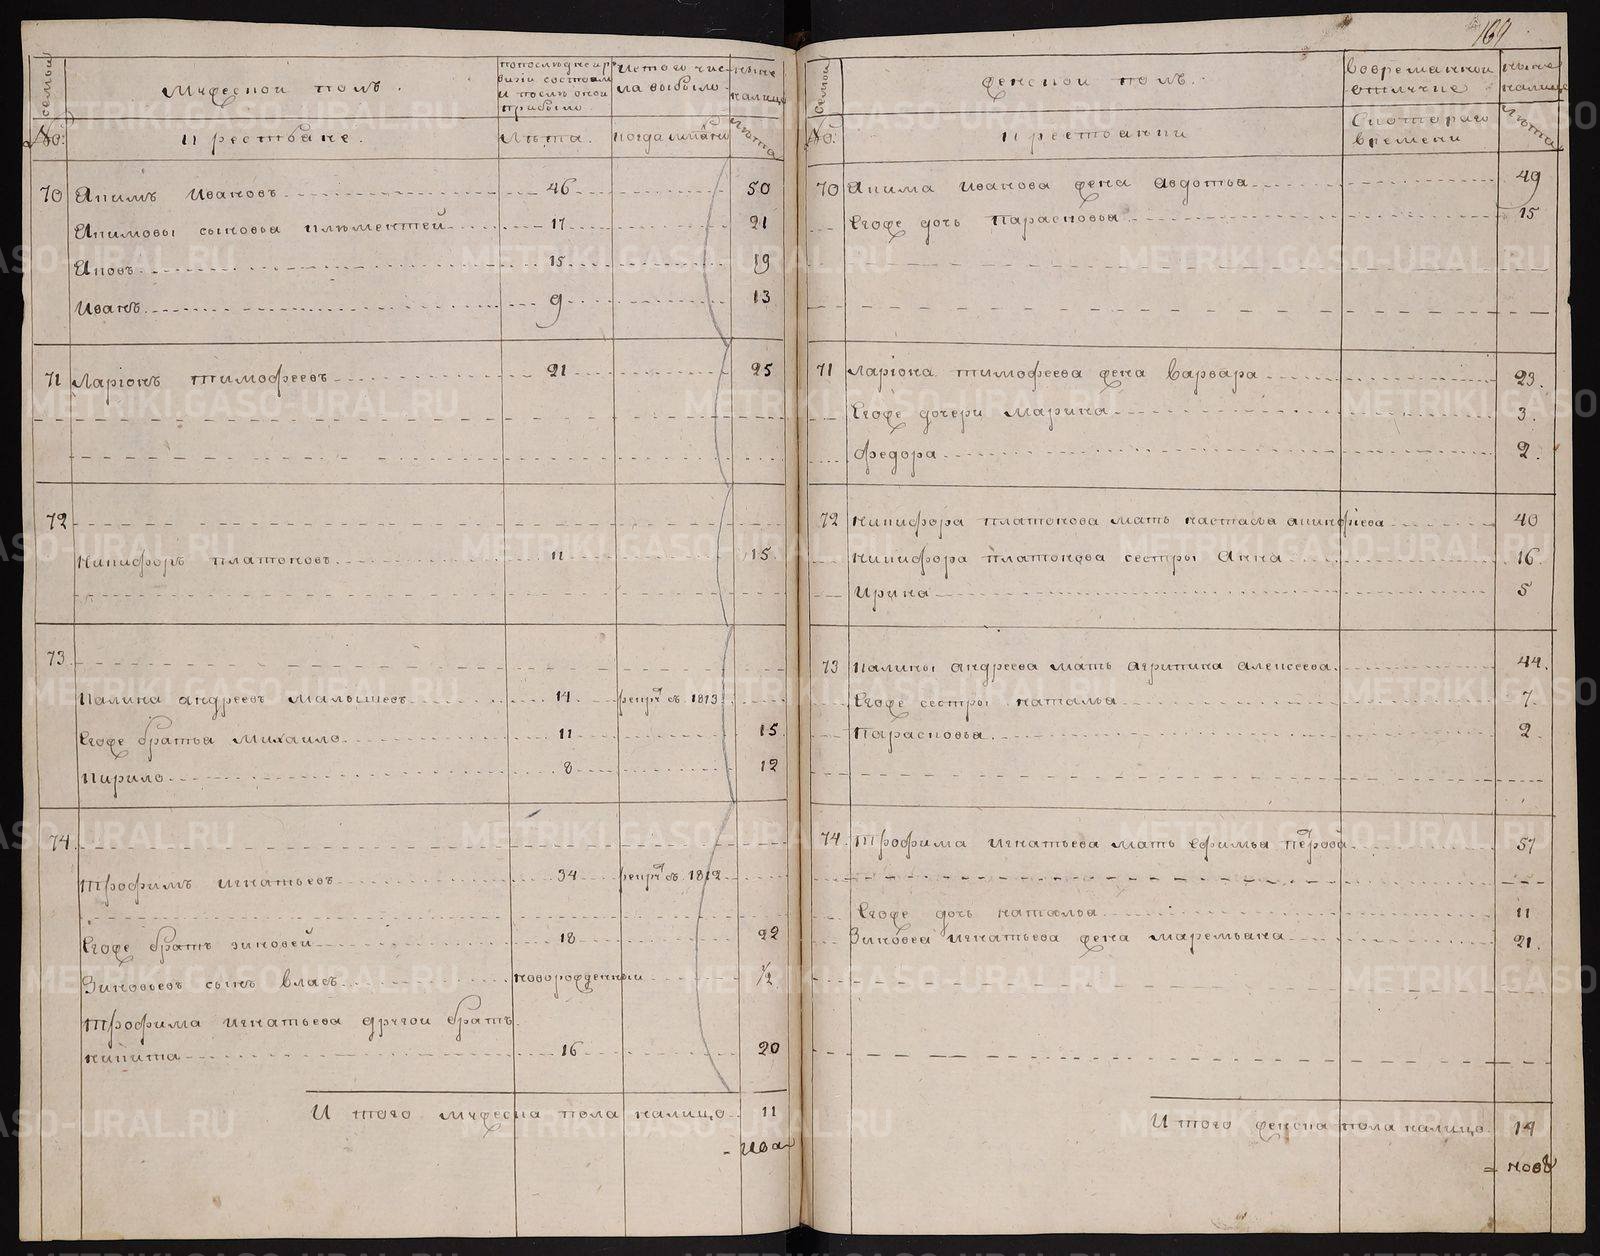 169
семьи
Мужеской полъ.
попоследней ревизии состояло и после оной прибыло.
изтого числа выбыло
ныне налицо
№:
крестьяне.
Лета.
когда имянно
лета
70 Акимъ Ивановъ 46 50
Акимовы сыновья климентей 17 21
Яковъ 15 19
Иванъ 9 13
71 Ларіонъ тимофеевъ 21 25
72
никифоръ платоновъ 11 15
73
калина андреевъ малышевъ 14 рекрутъ съ 1813
Егоже братья михаило 11 15
кирило 8 12
74
трофимъ игнатьевъ 34 рекрутъ съ 1812
Егоже братъ зиновей 18 22
Зиновьевъ сынъ власъ новорожденный ½
трофима игнатьева другой братъ
никита 16 20
И того мужеска пола налицо 11
семьи
женской полъ.
вовременной отлучке
ныне налицо
№:
крестьянки
Скотораго времени
лета
70 Акима иванова жена авдотья 49
Егоже дочь парасковья 15
71 ларіона тимофеева жена варвара 23.
Егоже дочери марина 3.
федора 2.
72 никифора платонова мать настасья 40
никифора платонова сестры анна 16
ирина 5
73 калины андреева мать агрипина алексеева. 44.
Егоже сестры наталья 7.
парасковья 2
74. трофима игнатьева мать ефимья 57
Егоже дочь наталья 11
Зиновея игнатьева жена маремьяна 21.
И того женска пола налицо 14